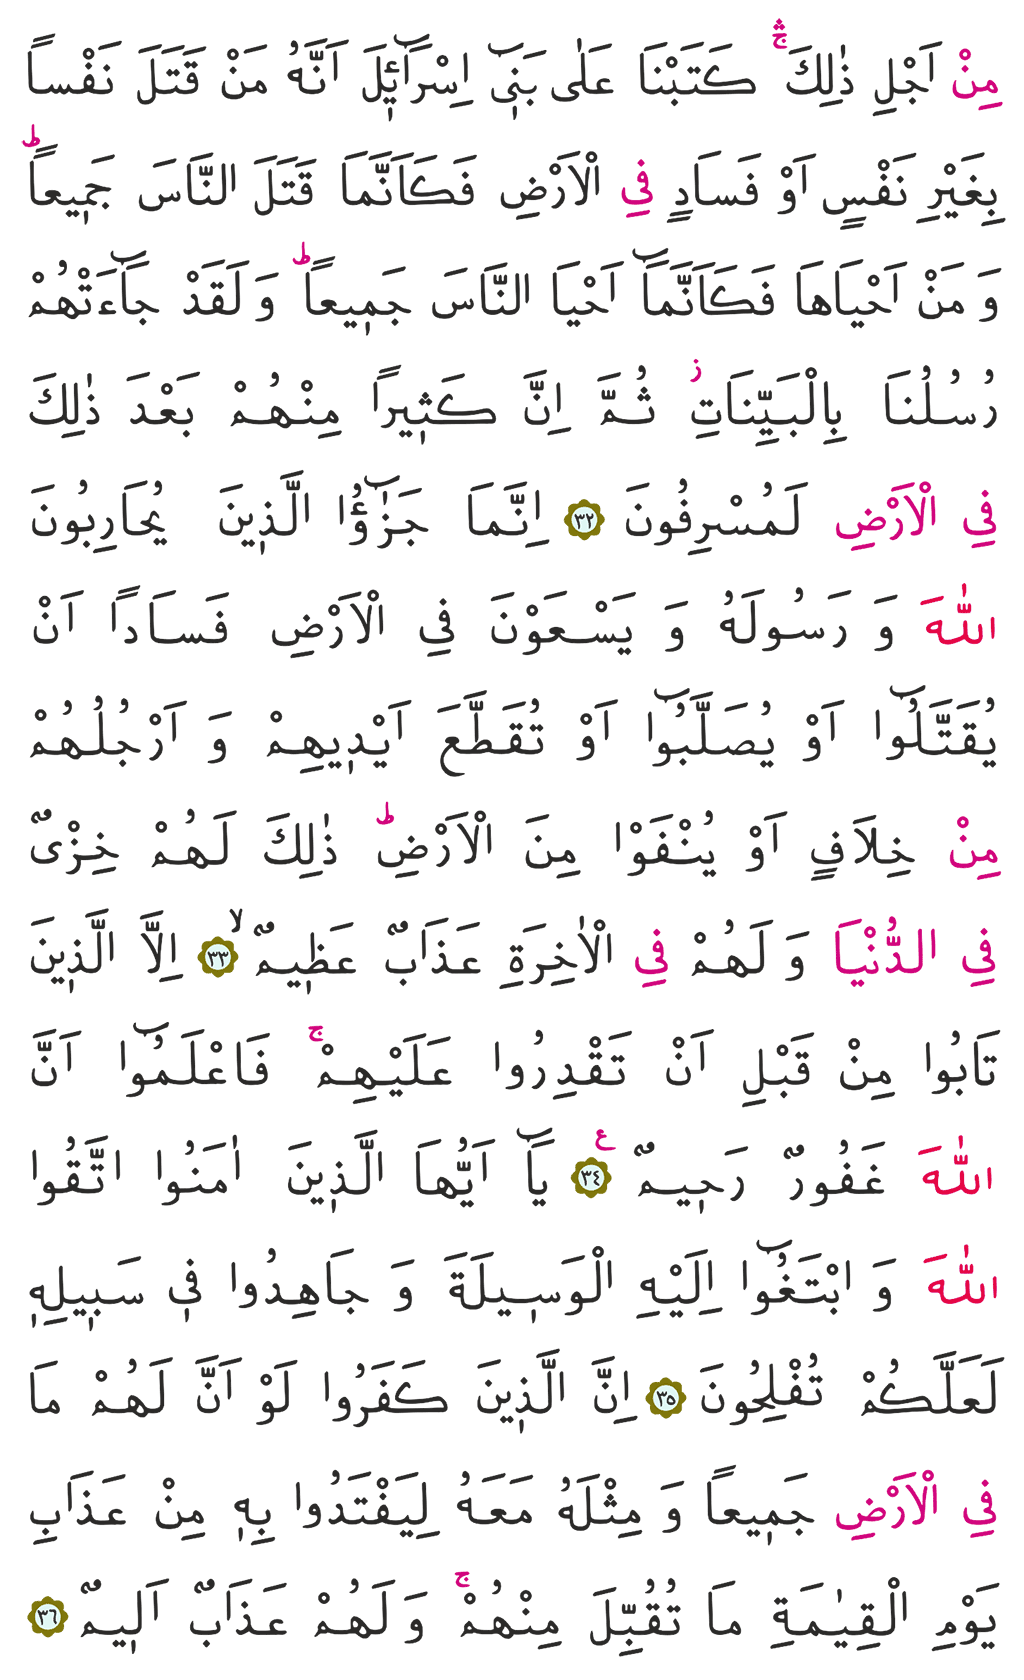 مِنْ اَجْلِ ذٰلِكَ ۛۚ كَتَبْنَا عَلٰى بَنٖٓي اِسْرَآئٖلَ اَنَّهُ مَنْ قَتَلَ نَفْساً
بِغَيْرِ نَفْسٍ اَوْ فَسَادٍ فِي الْاَرْضِ فَكَاَنَّمَا قَتَلَ النَّاسَ جَمٖيعاً ؕ
وَ مَنْ اَحْيَاهَا فَكَاَنَّمَآ اَحْيَا النَّاسَ جَمٖيعاً ؕ وَ لَقَدْ جَآءَتْهُمْ
رُسُلُنَا بِالْبَيِّنَاتِ ز ثُمَّ اِنَّ كَثٖيراً مِنْهُمْ بَعْدَ ذٰلِكَ
فِي الْاَرْضِ لَمُسْرِفُونَ ٣٢ اِنَّمَا جَزٰٓؤُا الَّذٖينَ يُحَارِبُونَ
اللّٰهَ وَ رَسُولَهُ وَ يَسْعَوْنَ فِي الْاَرْضِ فَسَادًا اَنْ
يُقَتَّلُٓوا اَوْ يُصَلَّبُٓوا اَوْ تُقَطَّعَ اَيْدٖيهِمْ وَ اَرْجُلُهُمْ
مِنْ خِلَافٍ اَوْ يُنْفَوْا مِنَ الْاَرْضِ ؕ ذٰلِكَ لَهُمْ خِزْىٌ
فِي الدُّنْيَا وَ لَهُمْ فِي الْاٰخِرَةِ عَذَابٌ عَظٖيمٌ ۙ ٣٣ اِلَّا الَّذٖينَ
تَابُوا مِنْ قَبْلِ اَنْ تَقْدِرُوا عَلَيْهِمْ ۚ فَاعْلَمُٓوا اَنَّ
اللّٰهَ غَفُورٌ رَحٖيمٌ ع ٣٤ يَآ اَيُّهَا الَّذٖينَ اٰمَنُوا اتَّقُوا
اللّٰهَ وَ ابْتَغُٓوا اِلَيْهِ الْوَسٖيلَةَ وَ جَاهِدُوا فٖي سَبٖيلِهٖ
لَعَلَّكُمْ تُفْلِحُونَ ٣٥ اِنَّ الَّذٖينَ كَفَرُوا لَوْ اَنَّ لَهُمْ مَا
فِي الْاَرْضِ جَمٖيعاً وَ مِثْلَهُ مَعَهُ لِيَفْتَدُوا بِهٖ مِنْ عَذَابِ
يَوْمِ الْقِيٰمَةِ مَا تُقُبِّلَ مِنْهُمْ ۚ وَ لَهُمْ عَذَابٌ اَلٖيمٌ ٣٦